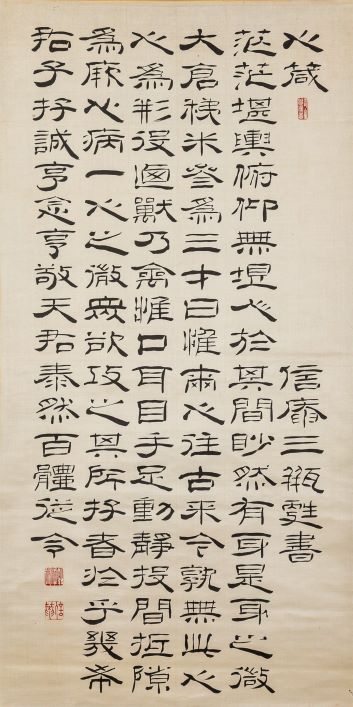 心箴
信 三瓶 書
茫茫堪輿俯仰無垠人於其間眇然有身是身之微
大倉稊米參為三才曰惟爾心往古來今孰無此心
心為形役迺獸乃禽惟口耳目手足動靜投間抵隙
為厥心病一心之微眾欲攻之其所存者於乎幾希
君子存誠克念克敬天君泰然百體從令